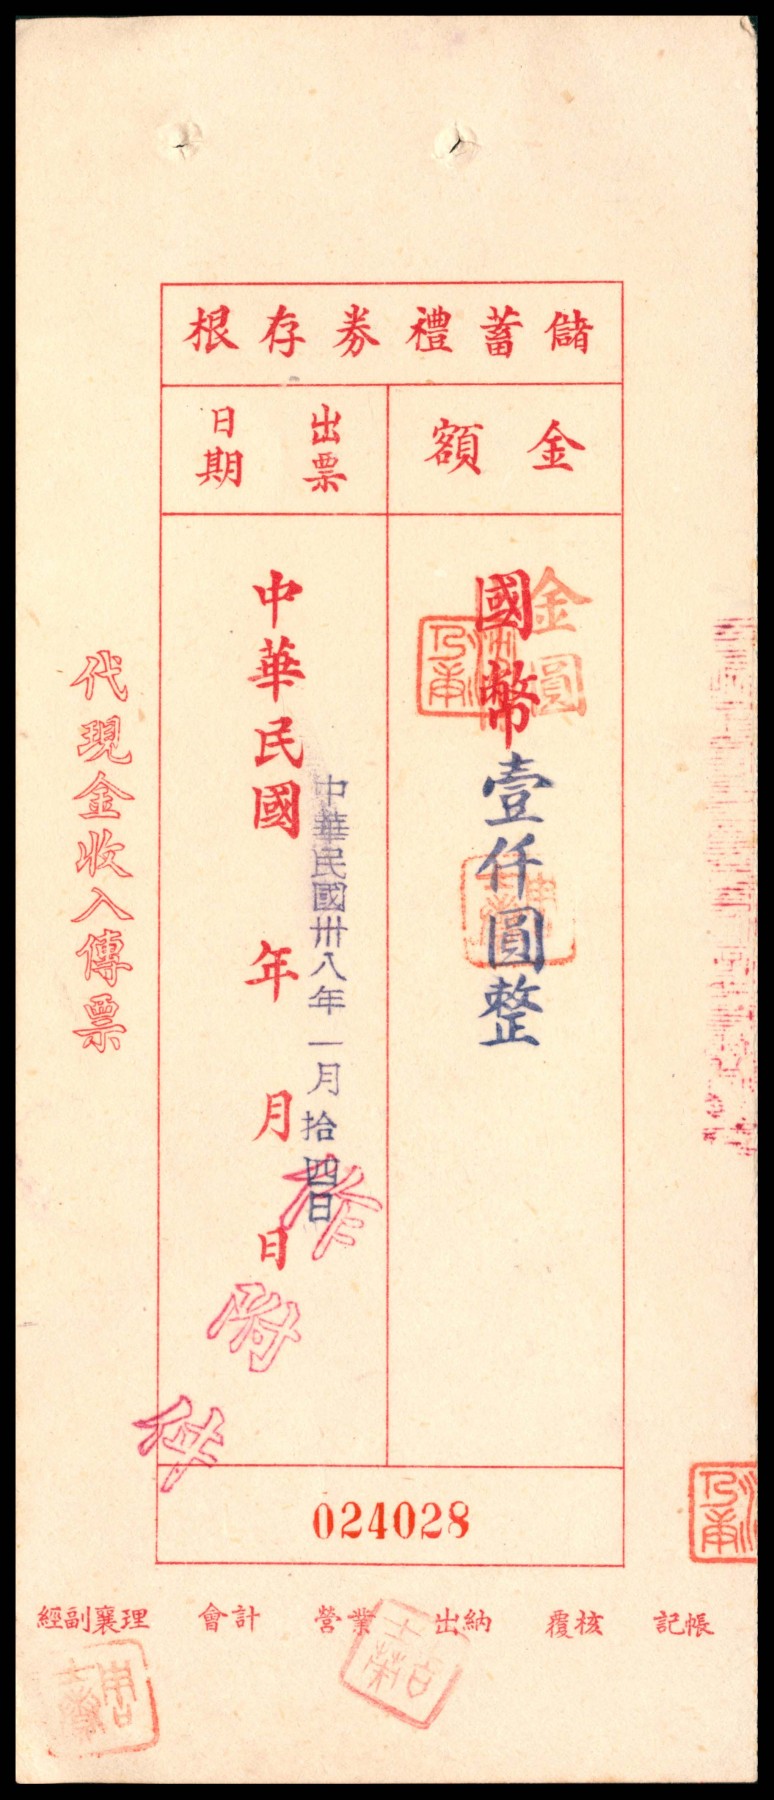 儲蓄禮券存根
金額
出票日期
國幣壹仟圓整
金圓
中華民國 年 月 日
中華民國卅八年一月拾四日
作附件
代現金收入傳票
024028
記帳 覆核 出納 營業 會計 經副襄理